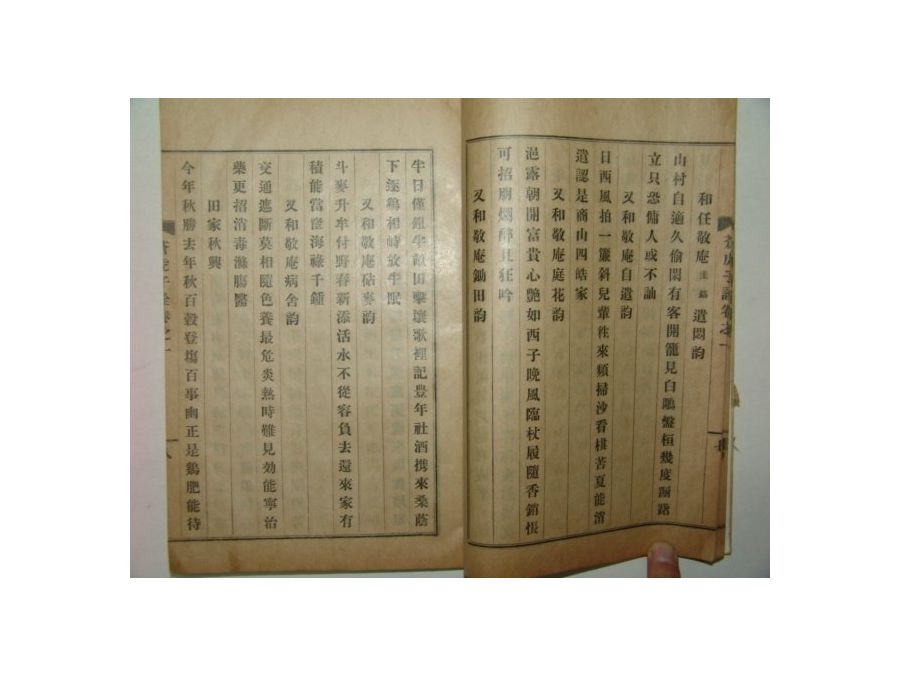 和任敬庵遺悶韵
山村自適久偷閑有客開籠見白鷴盤桓幾度
立只恐傭人或不訕
又和敬庵自遺韵
日西風拍一簾斜兒輩徃來頻掃沙看棋苦夏能消
遺認是商山四皓家
又和敬庵庭花韵
浥露朝開富貴心艷如西子晚風臨杖履隨香銷悵
可招朋爛醉且狂吟
又和敬庵鋤田韵
半日僅鋤半畝田擊壤歌裡記豊年社酒携來桑蔭
下逐鷄相峙放牛眠
又和敬庵砧麥韵
斗麥升牟付野舂新添活水不從容負去還來家有
積能當滄海祿千鍾
又和敬庵病舍韵
交通遮斷莫相隨色養最危炎熱時難見効能寧治
藥更招消毒滌腸醫
田家秋興
今年秋勝去年秋百穀登塲百事幽正是鷄肥能待